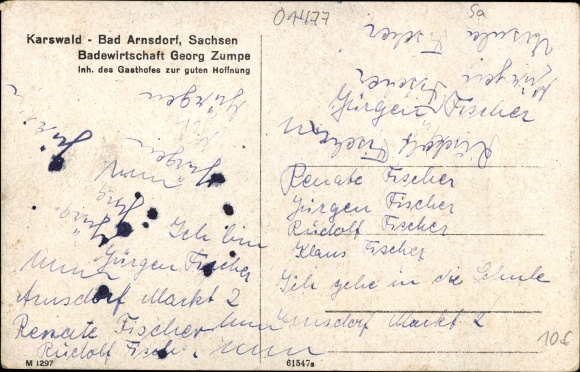 01477
Sa
Karswald - Bad Arnsdorf, Sachsen
Badewirtschaft Georg Zumpe
Inh. des Gasthofes zur guten Hoffnung
Ursula Fischer
Jürgen Fischer
Jürgen Fischer
Rudolf Fischer
Jürgen
Jürgen
Renate Fischer
Jürgen Fischer
Rudolf Fischer
Klaus Fischer
Ich gehe in die Schule
Arnsdorf Markt 2
Ich bin
Jürgen Fischer
Arnsdorf Markt 2
Renate Fischer
Rudolf Fisch
M 1297
61547a